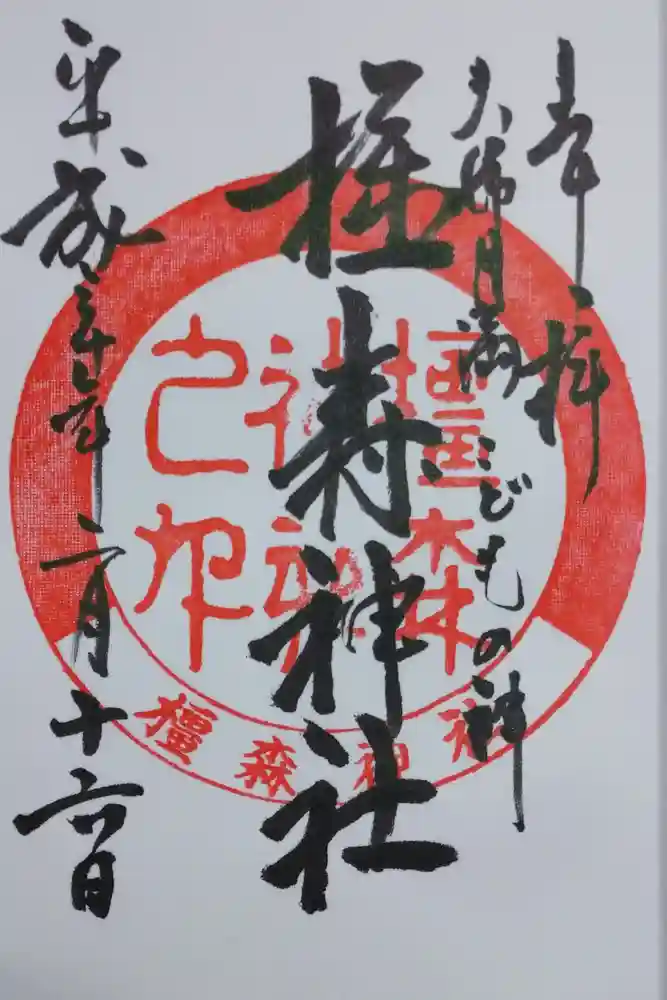 奉拝
夫婦円満こどもの神
橿森神社
平成三十一年二月十六日
橿森
神社
之印
橿森神社